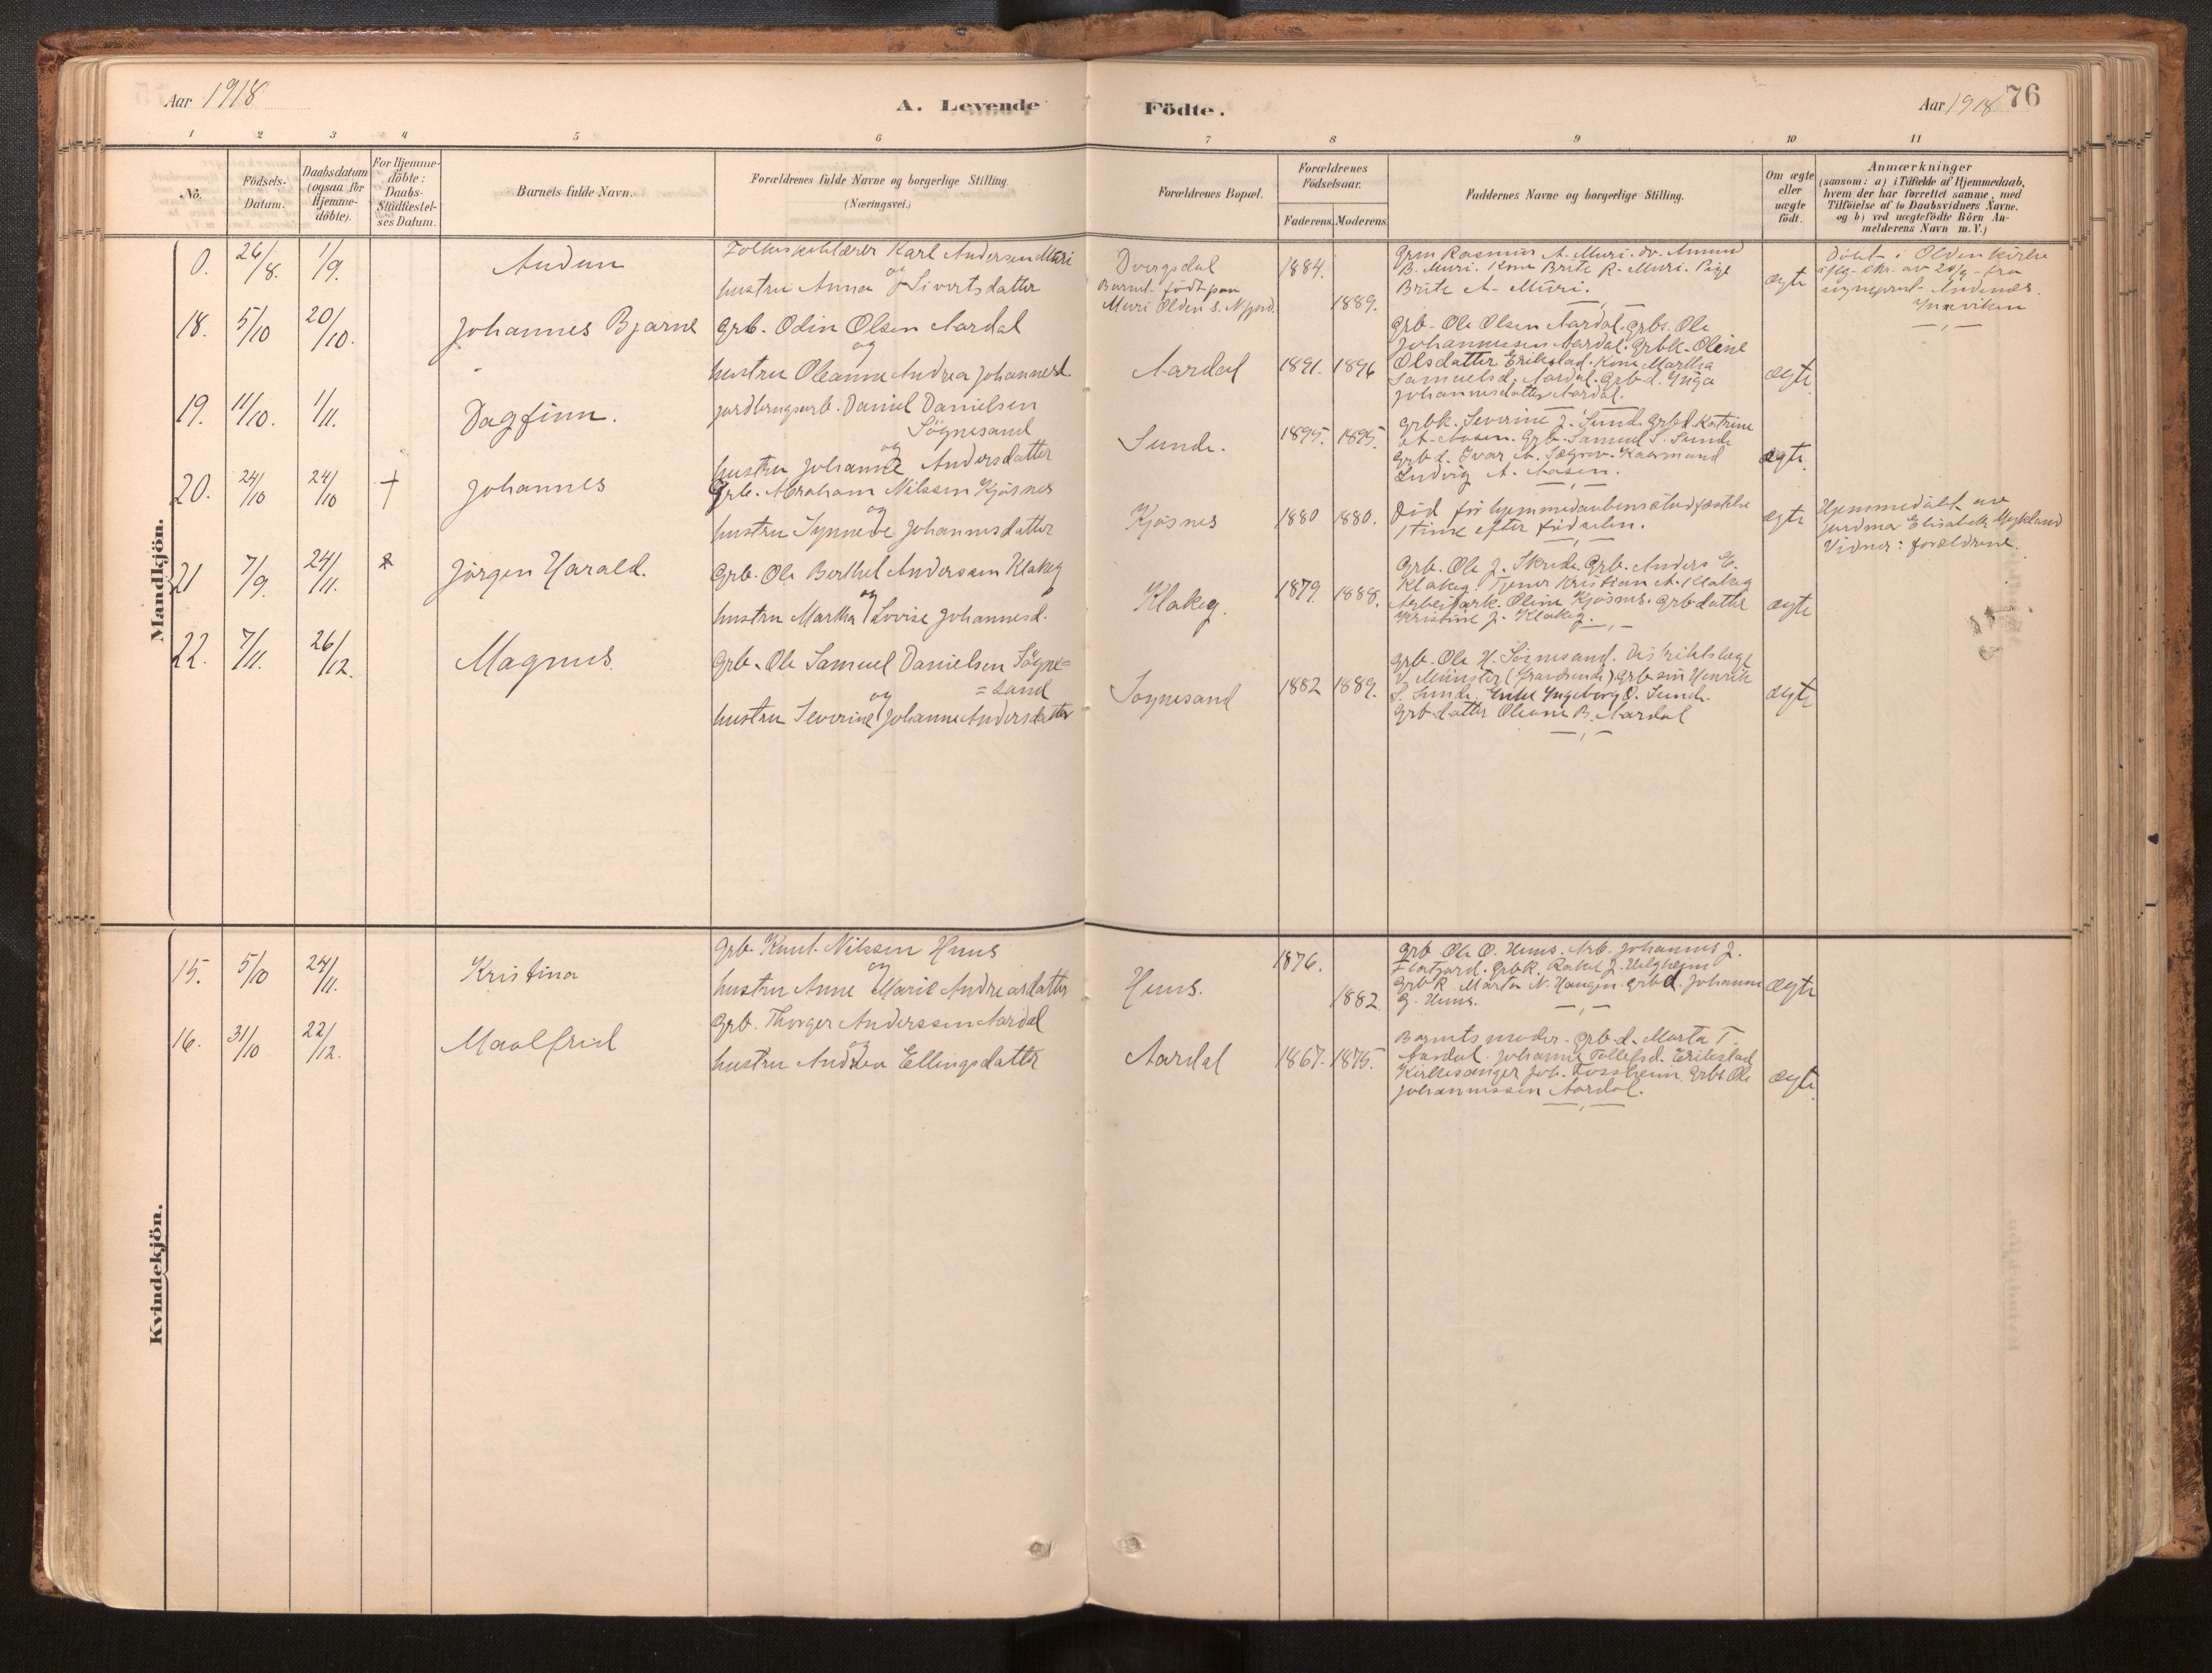 Aar 1918
A. Levende Födte.
Aar 1918 76
1 2 3 4 5 6 7 8 9 10 11
No.
Födsels-Datum.
Daabsdatum (ogsaa for Hjemme-döbte).
For Hjemme-döbte: Daabs-Stadfæstel-ses Datum.
Barnets fulde Navn.
Forældrenes fulde Navne og borgerlige Stilling.
(Næringsvei.)
Forældrenes Bopæl.
Forældrenes Födselsaar.
Faderens. Moderens.
Faddernes Navne og borgerlige Stilling.
Om ægte eller uægte födt.
Anmærkninger
(saasom: a) i Tilfælde af Hjemmedaab,
hvem der har forrettet samme, med
Tilföielse af to Daabsvidners Navne,
og b) ved uægtefödte Börn An-
melderens Navn m. V.)
Mandkjön.
0. 26/8. 1/9. Audun
Folkeskolelærer Karl Andersen Muri
og
hustru Anna Sivertsdatter
Dvergsdal
Barnet født paa
Muri Olden s. N.fjord.
1884. 1889.
Grm Rasmus A. Muri. Dr. Amund
B. Muri. Kone Brite R. Muri. Pige
Brite A. Muri.
ægte
Döbt i Olden kirke
ifølg. skr. av 20/9 fra
sogneprest Andenæs.
Innviken
18. 5/10 20/10. Johannes Bjarne
Grb. Odin Olsen Aardal
og
hustru Oleanne Andrea Johannesd.
Aardal 1891. 1896
Grb. Ole Olsen Aardal. Grbs. Ole
Johannessen Aardal. Grbk. Oline
Olsdatter Erikstad. Kone Martha
Samuelsd. Aardal. Grb d. Inga
Johannesdatter Aardal.
ægte
19. 11/10. 1/11. Dagfinn.
Jordbrugsarb. Daniel Danielsen
Sögnesand
og
hustru Johanne Andersdatter
Sunde. 1895. 1895.
Grbk. Severine J. Sunde Grbd. Katrine
A. Aasen. Grb. Samuel S. Sunde
Grb d. Ivar A. Sægrov. Kaarmand
Ludvig A. Aasen.
ægte.
20. 24/10 24/10 + Johannes
Grb. Abraham Nilssen Kjösnes
og
hustru Synneve Johannesdatter
Kjösnes 1880 1880.
Död för hjemmedaabens stadfæstelse
1 time efter födselen.
ægte
Hjemmedöbt av
jordmor Elisabeth Myklund
Vidner: forældrene.
21 7/9. 24/11. * Jörgen Harald.
Grb. Ole Berthel Anderssen Klakeg
og
hustru Martha Lovise Johannesd.
Klakeg. 1879. 1888.
Grb. Ole J. Skrede. Grb. Anders E.
Klakeg. Tjener Kristian A. Klakeg
Arbeidark. Oline Kjösnes. Grb datter
Kristine J. Klakeg.
ægte
22. 7/11. 26/12. Magnus.
Grb. Ole Samuel Danielsen Sögne=
=sand
og
hustru Severine Johanne Andersdatter
Sögnesand 1882 1889.
Grb. Ole H. Sögnesand. Distriktslæge
V. Münster (fraværende) Grb sön Henrik
S. Sunde. Enke Ingeborg O. Sunde.
Grb datter Oleane B. Aardal
ægte
Kvindekjön.
15. 5/10 24/11. Kristina
Grb. Knut Nilssen Huus
og
hustru Anne Marie Andreasdatter
Huus. 1876. 1882
Grb Ole O. Huus. Arb. Johannes J.
Flatjord. Grbk. Rakel J. Helgheim
Grb k Marta N. Haugen. Grb d. Johanne
G. Huus.
ægte
16. 31/10 22/12. Maalfrid
Grb. Thorger Anderssen Aardal
og
hustru Andrea Ellingsdatter
Aardal 1867. 1875.
Barnets moder. Grb. d. Marta T.
Aardal. Johanne Tollefsd. Erikstad
Kirkesanger Joh. Fossheim. Grbs. Ole
Johannessen Aardal.
ægte